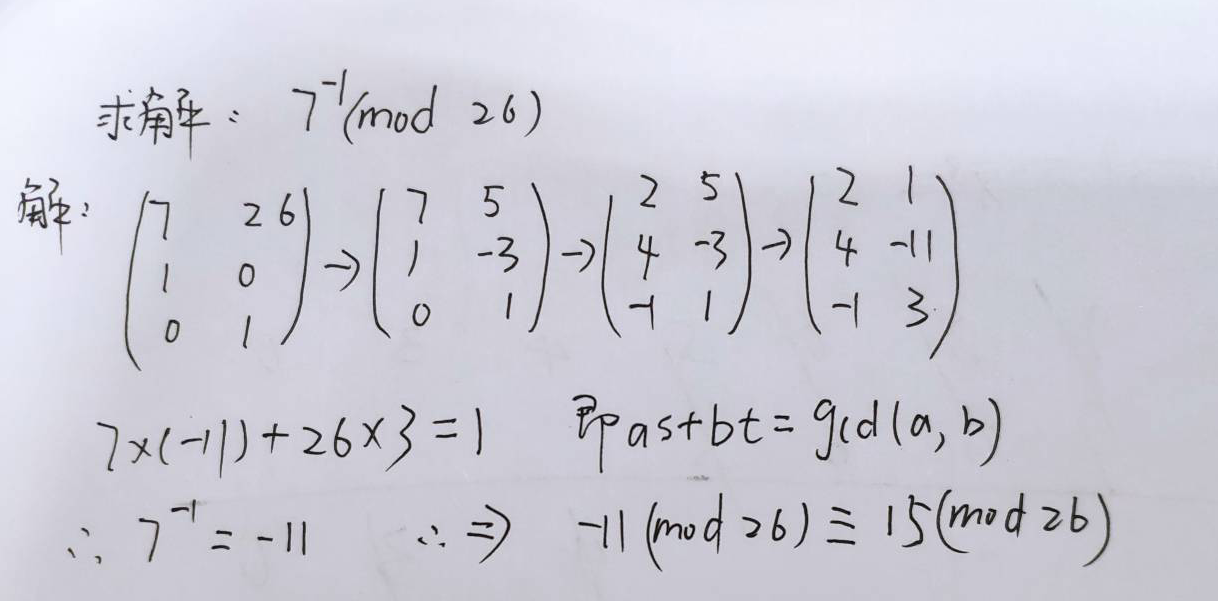 求解: 7⁻¹(mod 26)
解: (7 26 → (7 5 → (2 5 → (2 1
1 0 1 -3 4 -3 4 -11
0 1) 0 1) -1 1) -1 3)
7×(-11)+26×3=1 即as+bt=gcd(a,b)
∴ 7⁻¹=-11 ∴⇒ -11(mod 26)≡15(mod 26)